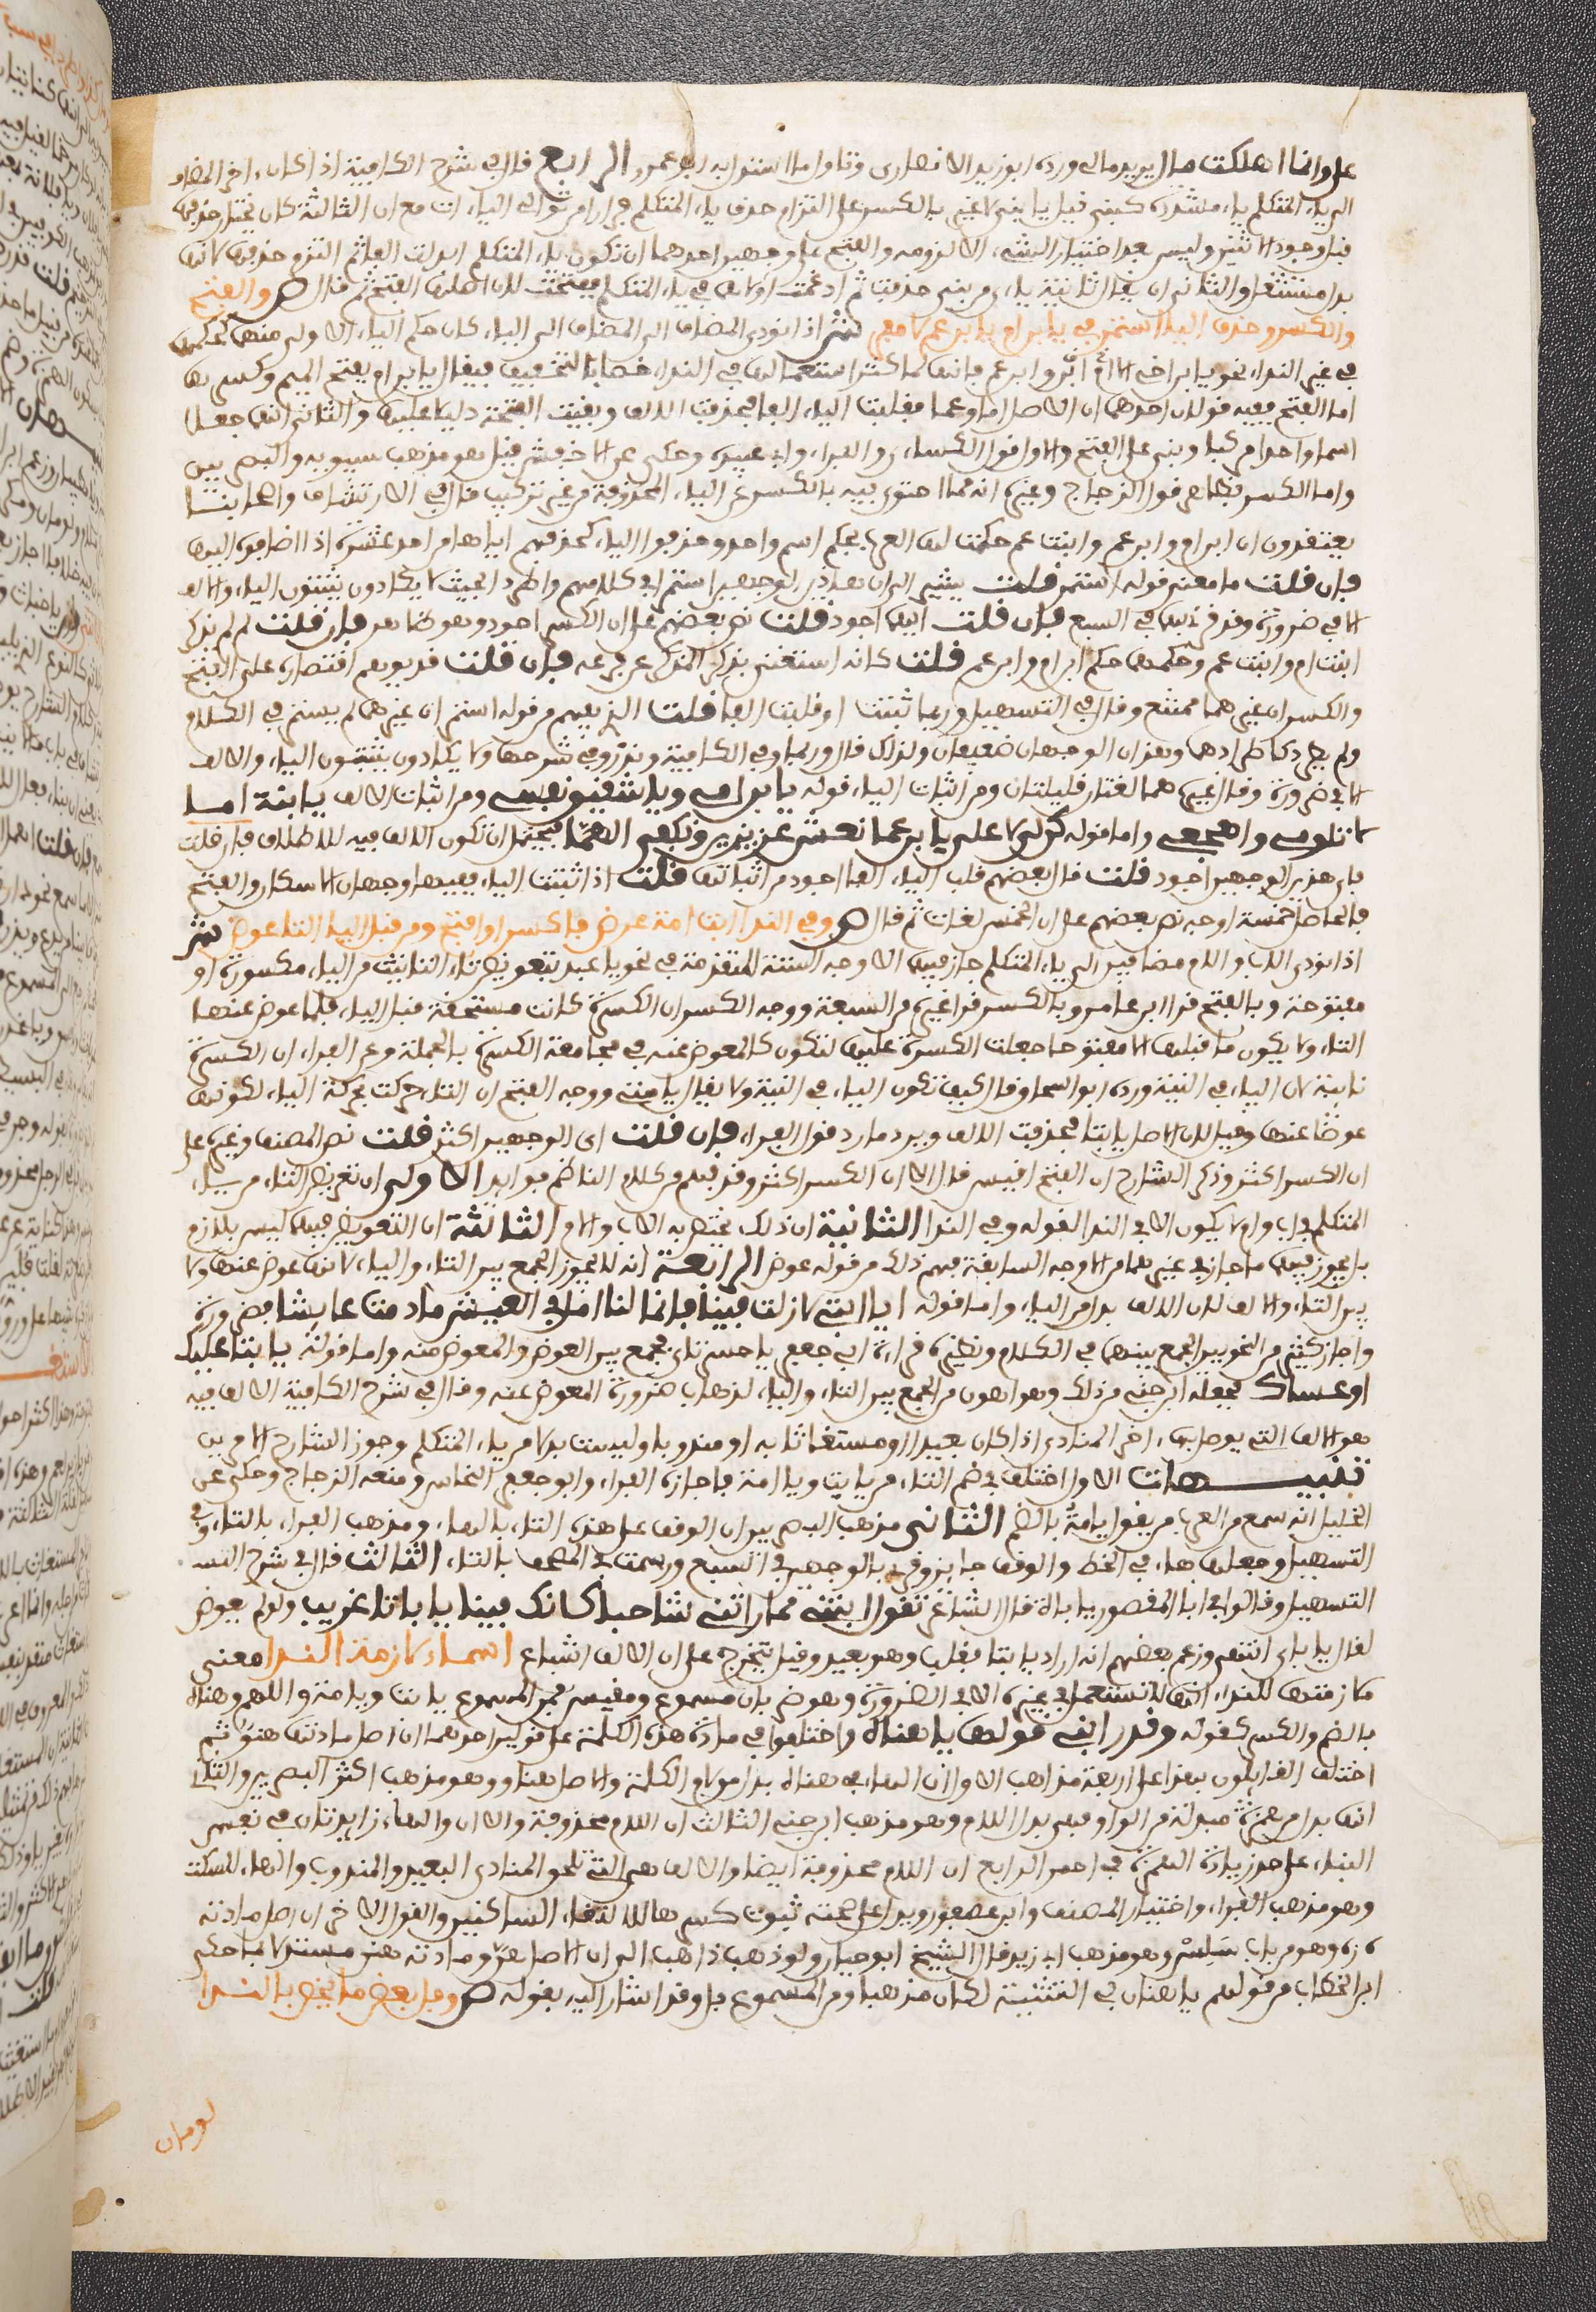 على وانما اهلكت مال يريد مالي ورده ابو زيد الانصاري وتاول ما استدل به ابو عمرو الرابع قال في شرح الكافية اذا كان اخر المضاف
الى ياء المتكلم ياء مشددة كبني قيل يا بني لا غير بالكسر على التزام حذف ياء المتكلم فرارا من توالي الياءات مع ان الثالثة كان يختار حذفها
قبل وجود اثنتين وليس بعد اختيار الشيء الا لزومه والفتح على وجهين احدهما ان تكون ياء المتكلم ابدلت الفا ثم التزم حذفها لانها
بدل مستثقل والثاني ان ثانية ياءي بني حذفت ثم ادغمت اولاهما في ياء المتكلم ففتحت لان اصلها الفتح ثم قال ص والفتح
والكسر وحذف اليا استمر في يا ابن ام يا ابن عم لا مفر ش اذا نودي المضاف الى المضاف الى الياء كان حكم الياء الاولى منها كحكمها
في غير النداء نحو يا ابن اخي الا ابن ام وابن عم فانها لما كثر استعمالها في النداء خصا بالتخفيف فيقال يا ابن ام بفتح الميم وكسرها
اما الفتح ففيه قولان احدهما ان الاصل اما وعما فقلبت الياء الفا فحذفت الالف وبقيت الفتحة دليلا عليها والثاني انهما جعلا
اسما واحدا مركبا وبني على الفتح والاول قول الكسائي والفراء وابي عبيدة وحكي عن الاخفش قيل وهو مذهب سيبويه والبصريين
واما الكسر فظاهر قول الزجاج وغيره انه مما اجتزئ فيه بالكسر عن الياء المحذوفة من غير تركيب قال في الارتشاف واصحابنا
يعتقدون ان ابن ام وابن عم وابنت عم حكمت لها العرب بحكم اسم واحد وحذفوا الياء كحذفهم اياها من احد عشر اذا اضافوه اليها
فان قلت ما معنى قوله استمر قلت يشير الى ان هذين الوجهين استمرا في كلامهم واطردا بحيث لا يكادون يثبتون الياء والالف
الا في ضرورة وقد قرئ بهما في السبع فان قلت ايهما اجود قلت نص بعضهم على ان الكسر اجود وهو كما هو فان قلت لم لم يذكر
ابنت ام وابنت عم وحكمهما حكم ابن ام وابن عم قلت كانه استغنى بذكر المذكر عن فرعه فان قلت قد يوهم اقتصاره على الفتح
والكسر ان غيرهما ممتنع وقال في التسهيل وربما ثبتت او قلبت الفا قلت الذي يفهم من قوله استمر ان غيرهما لم يستمر في الكلام
ولم يطرد كاطرادهما وهذان الوجهان ضعيفان ولذلك قال وربما وفي الكافية ونزر وفي شرحها ولا يكادون يثبتون الياء والالف
الا في ضرورة وقال غيره هما لغتان قليلتان ومن اثبات الياء قوله يا ابن امي ويا شقيق نفسي ومن اثبات الالف يا ابنة عما
لا تلومي واهجعي واما قوله كن لي لا علي يا ابن عما نعش عزيزين ونكفى الهما فيحتمل ان تكون الالف فيه للاطلاق فان قلت
فاي هذين الوجهين اجود قلت قال بعضهم قلب الياء الفا اجود من اثباتها قلت اذا ثبتت الياء ففيها وجهان الاسكان والفتح
فالحاصل خمسة اوجه نص بعضهم على ان الخمس لغات ثم قال ص وفي الندا ابت امت عرض فاكسر او افتح ومن قبل اليا التا عوض ش
اذا نودي الاب والام مضافين الى ياء المتكلم جاز فيهما الاوجه الستة المتقدمة في نحو يا عبد بتعويض تاء التانيث من الياء مكسورة او
مفتوحة وبالفتح قرا ابن عامر وبالكسر قرا غيره من السبعة ووجه الكسر ان الكسرة كانت مستحقة قبل الياء فلما عوض عنها
التاء ولا يكون ما قبلها الا مفتوحا جعلت الكسرة عليها لتكون كالمعوض عنه في مجامعة الكسرة بالجملة وعن الفراء ان الكسرة
نائبة لان الياء في النية ورده ابو اسحاق وقال كيف تكون الياء في النية ولا يقال يا ابتي ووجه الفتح ان التاء حركت بحركة الياء لكونها
عوضا عنها وقيل لان الاصل يا ابتا فحذفت الالف ويرد ما رد قول الفراء فان قلت اي الوجهين اكثر قلت نص المصنف وغيره على
ان الكسر اكثر وذكر الشارح ان الفتح اقيس قال الا ان الكسر اكثر وقد فهم من كلام الناظم فوائد الاولى ان تعويض التاء من ياء
المتكلم في اب وام لا يكون الا في النداء لقوله وفي الندا الثانية ان ذلك يختص به الاب والام الثالثة ان التعويض فيهما ليس بلازم
بل يجوز فيهما ما جاز في غيرهما من الاوجه السابقة فهم ذلك من قوله عرض الرابعة انه لا يجوز الجمع بين التاء والياء لانها عوض عنها ولا
بين التاء والالف لان الالف بدل من الياء واما قوله ايا ابتي لا زلت فينا فانما لنا امل في العيش ما دمت عائشا فضرورة
واجاز كثير من النحويين الجمع بينهما في الكلام ونظيره قراءة ابي جعفر يا حسرتاي فجمع بين العوض والمعوض منه واما قوله يا ابتا علك
او عساك فجعله ابن جني من ذلك وهو اهون من الجمع بين التاء والياء لذهاب صورة المعوض عنه وقال في شرح الكافية الالف فيه
هو الالف التي يوصل بها اخر المنادى اذا كان بعيدا او مستغاثا به او مندوبا وليست بدلا من ياء المتكلم وجوز الشارح الامرين
تنبيهات الاول اختلف في ضم التاء من يا ابت ويا امت فاجازه الفراء وابو جعفر النحاس ومنعه الزجاج وحكي عن
الخليل انه سمع من العرب من يقول يا امة بالضم الثاني مذهب البصريين ان الوقف على هذه التاء بالهاء ومذهب الفراء بالتاء وفي
التسهيل وجعلها هاء في الخط والوقف جائز وقرئ بالوجهين في السبع ورسمت في المصحف بالتاء الثالث قال في شرح التسـ
التسهيل وقالوا في ابا المقصور يا باة قال الشاعر تقول ابنتي لما راتني شاحبا كانك فينا يا باتا غريب ولو لم يعوض
لقال يا باي انتهى وزعم بعضهم انه اراد يا ابتا فقلب وهو بعيد وقيل يتخرج على ان الالف اشباع اسماء لازمت الندا معنى
ملازمتها للنداء انها لا تستعمل في غيره الا في الضرورة وهو ضربان مسموع ومقيس فمن المسموع يا ابت ويا امت واللهم وهناه
بالضم والكسر كقوله وقد رابني قولها يا هناه واختلفوا في مادة هذه الكلمة على قولين احدهما ان اصل مادتها هنو ثم
اختلف القائلون بهذا على اربعة مذاهب الاول ان الهاء في هناه بدل من لام الكلمة والاصل هناو وهو مذهب اكثر البصريين والثاني
انها بدل من همزة مبدلة من الواو فهي بدل اللام وهو مذهب ابن جني الثالث ان اللام محذوفة والالف والهاء زائدتان في نفس
البناء على حد زيادة الهمزة في احمر الرابع ان اللام محذوفة ايضا والالف هي التي تلحق المنادى البعيد والمندوب والهاء للسكت
وهو مذهب الفراء واختيار المصنف وابن عصفور ويدل على صحته ثبوت كسرها لالتقاء الساكنين والقول الاخر ان اصل مادته
ه ن ه وهو من باب سلس وهو مذهب ابي زيد قال الشيخ ابو حيان ولو ذهب ذاهب الى ان الاصل هن ومادته هنن مستدلا بما حكى
ابو الخطاب من قولهم يا هنان في التثنية لكان مذهبا ومن المسموع فل وقد اشار اليه بقوله ص وفل بعض ما يخص بالندا
لومان